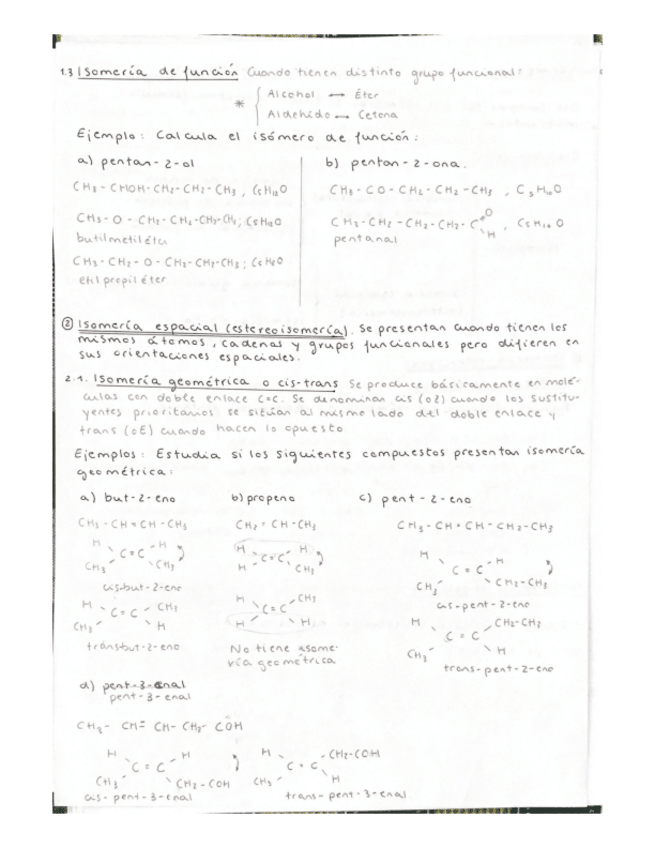 1.3 Isomería de función Cuando tienen distinto grupo funcional:
* { Alcohol ⟷ Éter
Aldehído ⟷ Cetona
Ejemplo: Calcula el isómero de función:
a) pentan-2-ol
CH3-CHOH-CH2-CH2-CH3, C5H12O
CH3-O-CH2-CH2-CH2-CH3; C5H12O
butilmetiléter
CH3-CH2-O-CH2-CH2-CH3; C5H12O
etilpropil éter
b) pentan-2-ona.
CH3-CO-CH2-CH2-CH3, C5H10O
CH3-CH2-CH2-CH2-C=O H, C5H10O
pentanal
② Isomería espacial (estereoisomería). Se presentan cuando tienen los
mismos átomos, cadenas y grupos funcionales pero difieren en
sus orientaciones espaciales.
2.1. Isomería geométrica o cis-trans Se produce básicamente en molé-
culas con doble enlace C=C. Se denominan cis (o Z) cuando los sustitu-
yentes prioritarios se sitúan al mismo lado del doble enlace y
trans (o E) cuando hacen lo opuesto
Ejemplos: Estudia si los siguientes compuestos presentan isomería
geométrica:
a) but-2-eno
CH3-CH=CH-CH3
H H
C=C
CH3 CH3
cis-but-2-eno
H CH3
C=C
CH3 H
trans-but-2-eno
b) propeno
CH2=CH-CH3
H H
C=C
H CH3
H CH3
C=C
H H
No tiene isome-
ría geométrica
c) pent-2-eno
CH3-CH=CH-CH2-CH3
H H
C=C
CH3 CH2-CH3
cis-pent-2-eno
H CH2-CH3
C=C
CH3 H
trans-pent-2-eno
d) pent-3-enal
pent-3-enal
CH3-CH=CH-CH2-COH
H H
C=C
CH3 CH2-COH
cis-pent-3-enal
H CH2-COH
C=C
CH3 H
trans-pent-3-enal